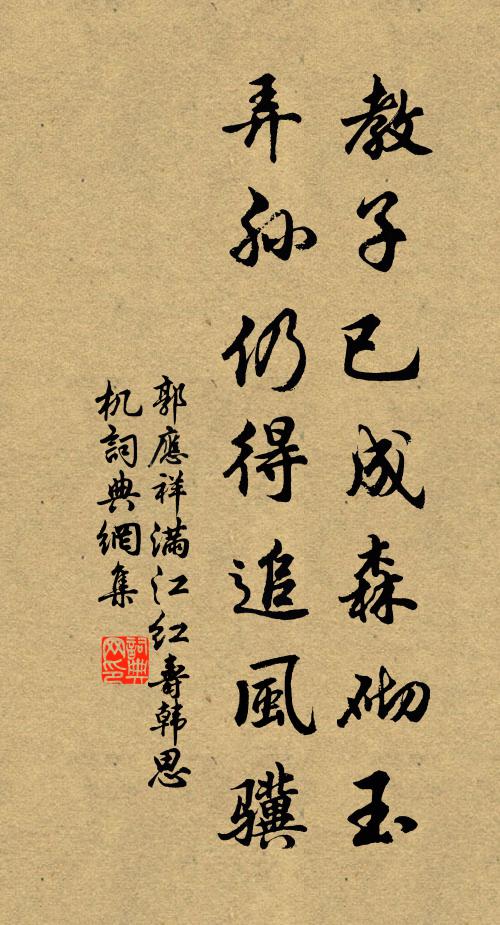 教子已成森砌玉
弄孙仍得追風骥
郭應祥满江红壽韩思
机詞典網集
詞典
网印